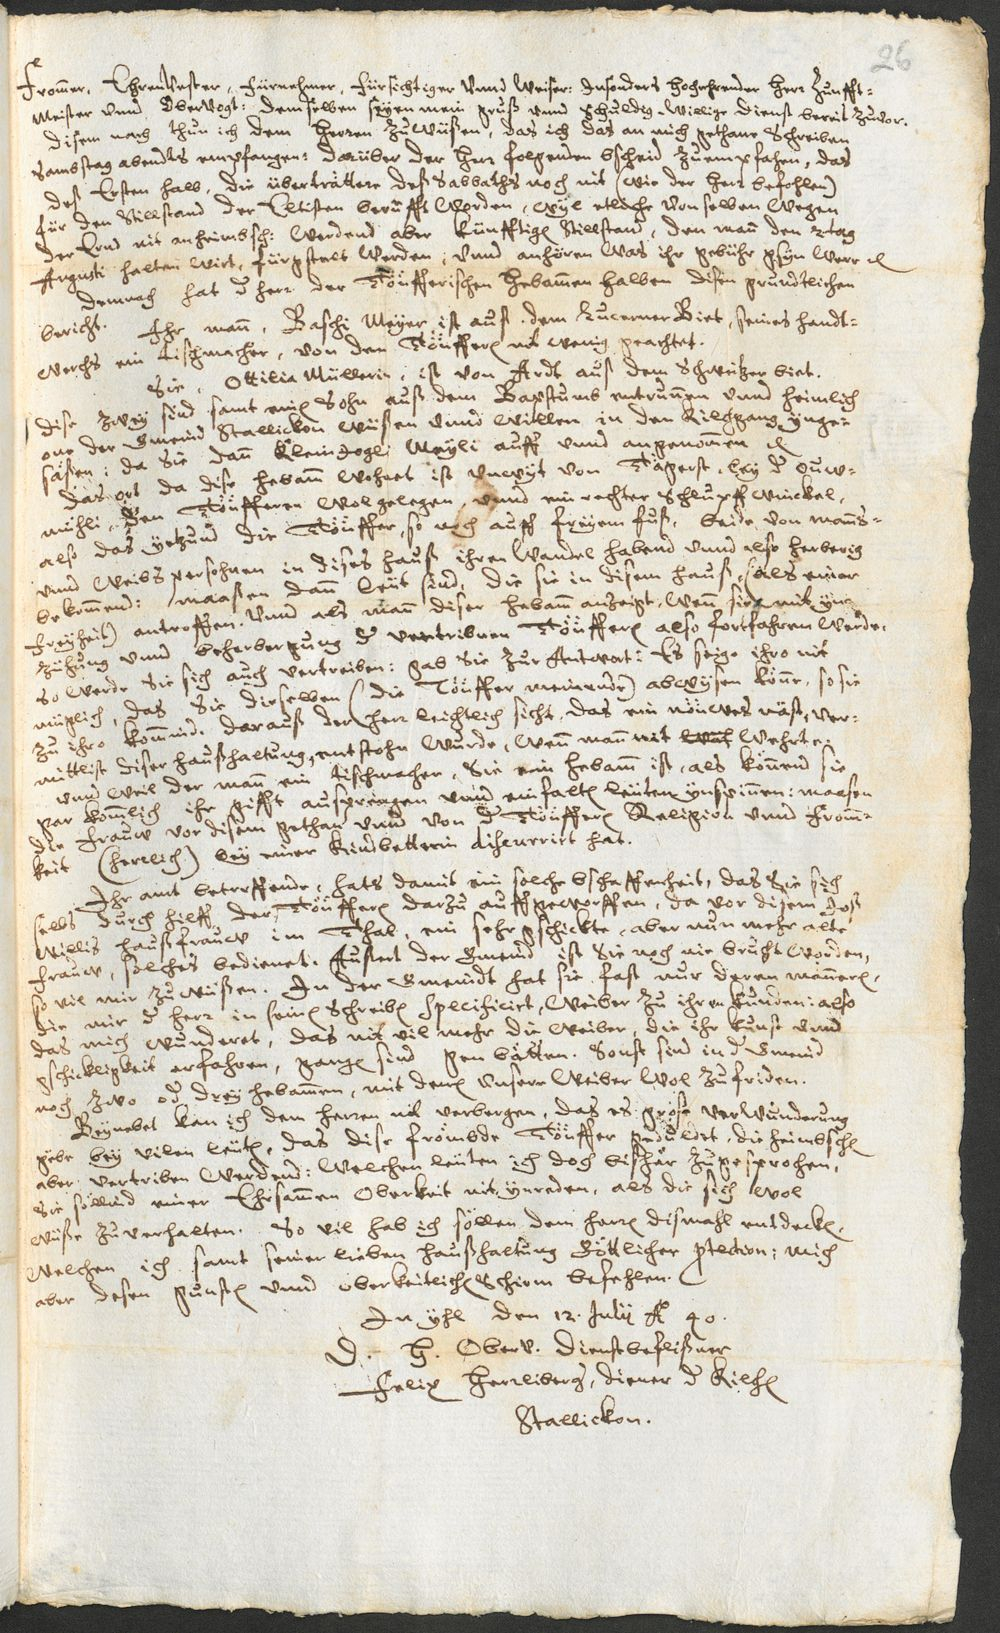 26
Frommer, Ehrenvester, Fürnehmer, Fürsichtiger unnd Weiser: Insonders hochehrender Herr Zunfft-
meister unnd Obervogt: demselben seyen mein gruß unnd schuldig-willige dienst bereit zuvor.
Disem nach thun ich dem Herren zuwüßen, das ich das an mich gethane schreiben
Sambstag abendts empfangen: darüber der herr folgenden bscheid zuempfahen, das
deß Ersten halb, die überträttere deß Sabbaths noch nit (wie der herr befohlen)
für den Stillstand der Eltisten berüfft worden, wyl etliche von selben wegen
der Ernd nit anheimbsch: werdend aber künfftigē Stillstand, den man den 2 tag
Augusti halten wirt, fürgstelt werden; unnd anhören was ihr gebühr gsyn werr ꝛc
Demnach hat d herr der Töufferischen hebammen halben disen grundtlichen
bericht. Ihr mann, Baschi Meyer, ist auß dem Lucerner Biet, seines handt-
werchs ein tischmacher, von den Töufferē nit wenig geachtet.
Sie, Ottilia Müllerin, ist von Ardt auß dem Schwitzer biet.
Dise zwey sind samt einē Sohn auß dem Bapstumb entrunnen unnd heimlich
one der Gmeind Stallickon wüßen unnd willen in den Kilchgang ynge-
säßen: da Sie dann Kleinjogli Meyli auff unnd angenommen ꝛc
Das ort da dise hebamm wohnet ist unwyt von Tägerst, bey d Ouw-
mühli, den Töufferen wol gelegen, unnd ein rechter Schlupff winckel,
also das yetzund die Töuffer, so noch auff freyem fuß, beide von manns-
unnd Weibs persohnen in dises hauß ihren Wandel habend unnd also herberig
bekommend: maaßen dann leüt sind, die sie in disem hauß, (als einer
freyheit) antroffen. Unnd als mann diser hebamm anzeigt, wenn sie mit yn-
züchung unnd beherbergung d vertribnen Töufferē also fortfahren werde,
so werde Sie sich auch vertreiben: gab Sie zur Antwort: Es seige ihro nit
müglich, das Sie dieselben (die Töuffer meinende) abwysen könne, so sie
zu ihro kommind. Darauß der herr leichtlich sicht, das ein nöuwes näst, ver-
mittlist diser haußhaltung, entstohn wurde, wenn mann nit wehrte:
unnd weil der mann ein tischmacher, Sie ein hebamm ist, als könnend sie
gar kommlich ihr gifft aussprengen unnd einfaltē leüten ynspinnen: maaßen
die frauw vor disem gethan unnd von d Töufferē Religion unnd fromm-
keit (herrlich) bey einer kindbetterin discurrirt hat.
Ihr amt betreffende, hats damit ein solche bschaffenheit, das Sie sich
selbs durch hilff der Töufferē darzu auffgeworffen, da vor disem Joß
Willis haußfrauw im Thal, ein sehr gschickte, aber nun mehr alte
frauw, solches bedienet. Aussert der Gmeind ist Sie noch nie brucht worden,
so vil mir zuwüßen. In der Gmeindt hat sie fast nur deren männerē,
die mir d herr in seinē schreibē specificirt, Weiber zu ihren kunden: also
das mich wunderet, das nit vil mehr die weiber, die ihr kunst unnd
gschickligkeit erfahren, gangē sind gen bätten. Sonst sind in d Gmeind
noch zwo od drey hebammen, mit denē unsere Weiber wol zufriden.
Beynebet kan ich dem herren nit verbergen, das es große verwunderung
gebe bey vilen leütē, das dise frömbde Töuffer geduldet, die heimbschē
aber vertriben werdend: Welchen leüten ich doch bishär zugesprochen,
Sie söllind einer Ehrsammen Oberkeit nit ynreden, als die sich wol
wüße zuverhalten. So vil hab ich söllen dem herrē dismahl entdeckē,
Welchen ich samt seiner lieben haußhaltung Göttlicher ptection: mich
aber desen gunstē unnd oberkeitlichē Schirm befehlen.
In yhl den 12. Julÿ Aº 40.
D. H. Oberv. Dienstbeflißner
Felix Herrliberg, diener d Kilchē
Stallickon.